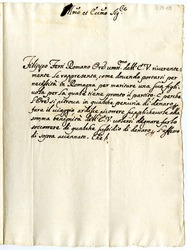 Ill.mo et Ecc.mo Sig.re
Filippo Ferri Romano Orũ umil.e dell'E.V. riverente
mente le rappresenta, come dovendo portarsi per
necessità in Romagna per maritare una sua figli
uola per la quale tiene pronto il partito. E perche
l'Ore si ritrova in qualche penuria di denaro
tara il viaggio ardisce ricorrere supplichevole alla
somma benignità dell'E.V. volersi degnare farlo
soccorrere di qualche sussidio di denaro, p. effetto
di sopra accennato. Che